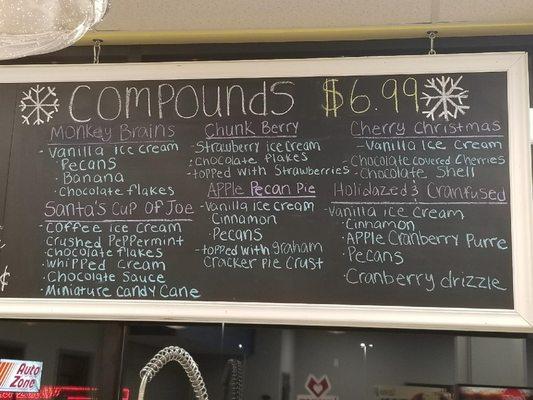 Compounds $6.99
Monkey Brains
• Vanilla ice cream
Pecans
• Banana
• Chocolate flakes
Santa's Cup of Joe
• Coffee ice cream
Crushed Peppermint
• chocolate flakes
• whipped cream
• Chocolate Sauce
• Miniature Candy Cane
Chunk Berry
• Strawberry Ice cream
• chocolate Flakes
• topped with Strawberries
Apple Pecan Pie
• Vanilla Ice cream
Cinnamon
• Pecans
- topped with graham
Cracker Pie Crust
Cherry Christmas
- Vanilla Ice Cream
- Chocolate covered Cherries
• Chocolate Shell
Holidazed & Cranfused
Vanilla ice cream
• Cinnamon
• Apple Cranberry Purre
• Pecans
• Cranberry drizzle
Auto
Zone